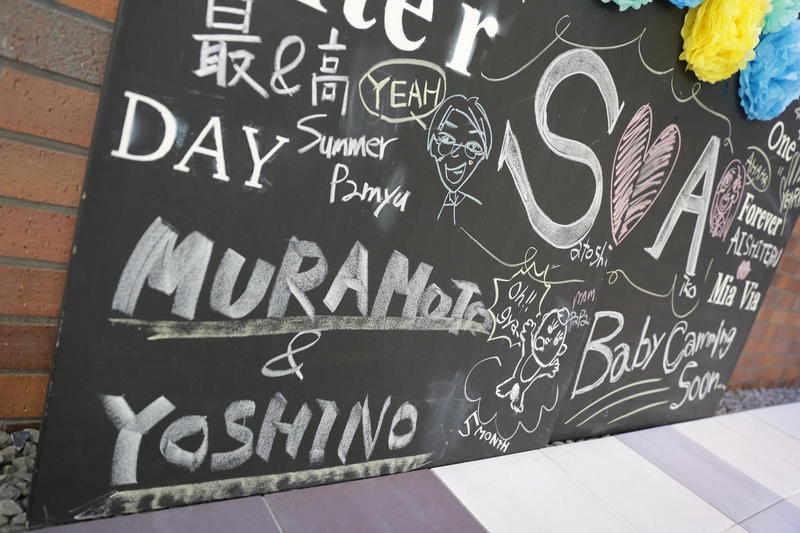 ter
最&高
YEAH
DAY
Summer
Pamyu
S A
atoshi
iko
One
Forever
AISHITERU
Mia Via
MURAMOTO
&
YOSHINO
Oh!!
mom
papa
5 MONTH
Baby Camming
Soon...